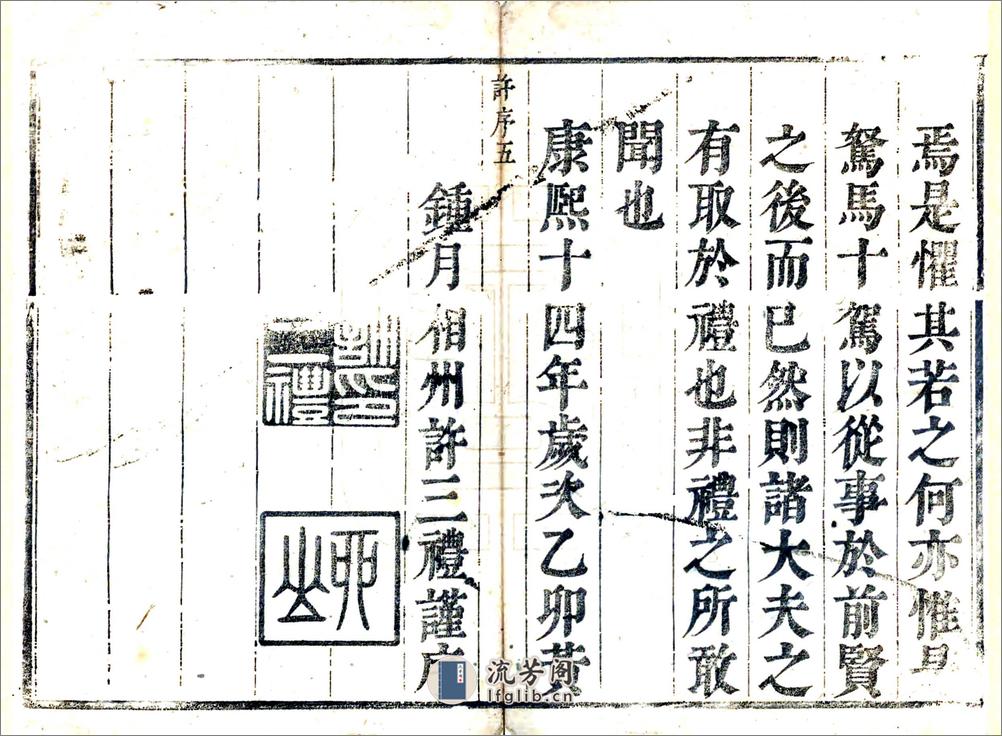 焉是懼其若之何亦惟旦
駑馬十駕以從事於前賢
之後而已然則諸大夫之
有取於禮也非禮之所敢
聞也
許序五
康熙十四年歲次乙卯黃
鍾月相州許三禮謹序
許三禮印
酉山
流芳阁
lfglib.cn